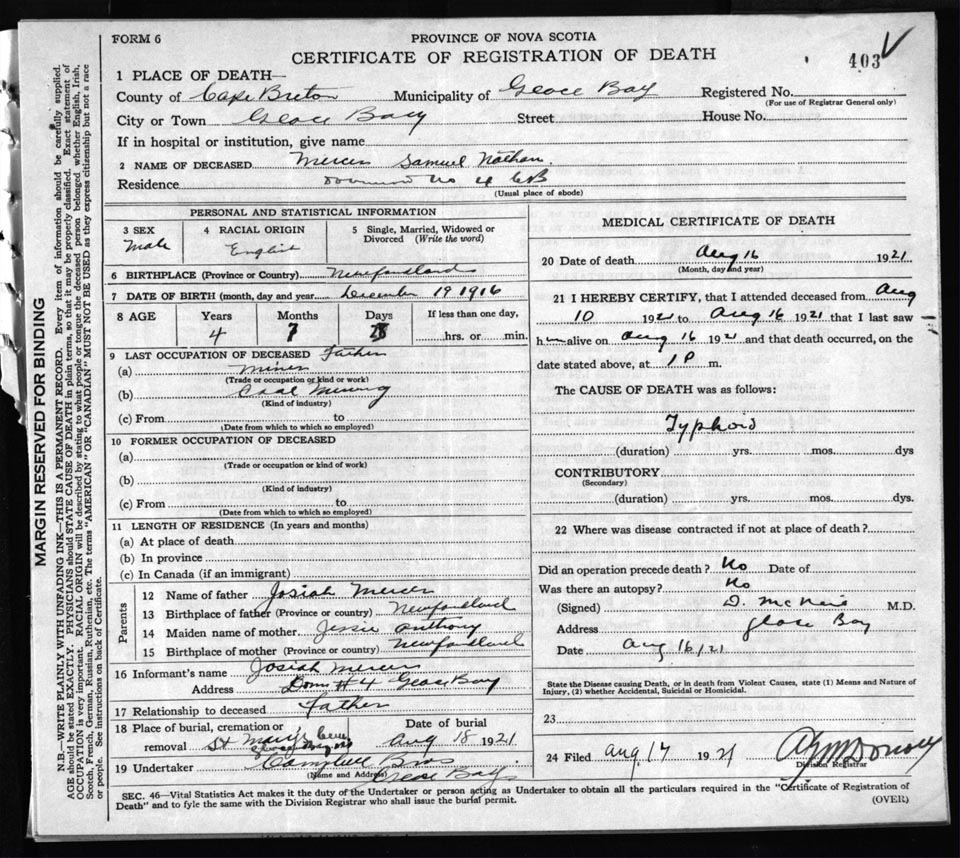 FORM 6
PROVINCE OF NOVA SCOTIA
CERTIFICATE OF REGISTRATION OF DEATH
403
1 PLACE OF DEATH—
County of Cape Breton Municipality of Glace Bay Registered No.
(For use of Registrar General only)
City or Town Glace Bay Street House No.
If in hospital or institution, give name
2 NAME OF DECEASED Mercer Samuel Nathan.
Residence No 4 CB
(Usual place of abode)
PERSONAL AND STATISTICAL INFORMATION
3 SEX Male
4 RACIAL ORIGIN English
5 Single, Married, Widowed or Divorced (Write the word)
6 BIRTHPLACE (Province or Country) Newfoundland
7 DATE OF BIRTH (month, day and year) December 19 1916
8 AGE Years Months Days If less than one day,
4 7 hrs. or min.
9 LAST OCCUPATION OF DECEASED Father
(a) Miner
(Trade or occupation or kind or work)
(b) Coal Mining
(Kind of industry)
(c) From to
(Date from which to which so employed)
10 FORMER OCCUPATION OF DECEASED
(a)
(Trade or occupation or kind of work)
(b)
(Kind of industry)
(c) From to
(Date from which to which so employed)
11 LENGTH OF RESIDENCE (In years and months)
(a) At place of death
(b) In province
(c) In Canada (if an immigrant)
Parents
12 Name of father Josiah Mercer
13 Birthplace of father (Province or country) Newfoundland
14 Maiden name of mother Jessie Anthony
15 Birthplace of mother (Province or country) Newfoundland
16 Informant's name Josiah Mercer
Address Dom #4 Glace Bay
17 Relationship to deceased Father
18 Place of burial, cremation or removal St Mary's Cem Date of burial Aug 18 1921
19 Undertaker Campbell Bros
(Name and Address) Glace Bay
MEDICAL CERTIFICATE OF DEATH
20 Date of death Aug 16 1921
(Month, day and year)
21 I HEREBY CERTIFY, that I attended deceased from Aug
10 1921 to Aug 16 1921 that I last saw
him alive on Aug 16 1921 and that death occurred, on the
date stated above, at 1 P m.
The CAUSE OF DEATH was as follows:
Typhoid
(duration) yrs. mos. dys
CONTRIBUTORY
(Secondary)
(duration) yrs. mos. dys.
22 Where was disease contracted if not at place of death?
Did an operation precede death? No Date of
Was there an autopsy? No
(Signed) D. McNeil M.D.
Address Glace Bay
Date Aug 16/21
State the Disease causing Death, or in death from Violent Causes, state (1) Means and Nature of
Injury, (2) whether Accidental, Suicidal or Homicidal.
23
24 Filed Aug 17 1921
Division Registrar
SEC. 46—Vital Statistics Act makes it the duty of the Undertaker or person acting as Undertaker to obtain all the particulars required in the "Certificate of Registration of
Death" and to fyle the same with the Division Registrar who shall issue the burial permit.
(OVER)
MARGIN RESERVED FOR BINDING
N.B.—WRITE PLAINLY WITH UNFADING INK—THIS IS A PERMANENT RECORD. Every item of information should be carefully supplied.
AGE should be stated EXACTLY. PHYSICIANS should STATE CAUSE OF DEATH in plain terms, so that it may be properly classified. Exact statement of
OCCUPATION is very important. RACIAL ORIGIN will be described by stating to what people or tongue the deceased person belonged whether English, Irish,
Scotch, French, German, Russian, Ruthenian, etc. The terms "AMERICAN" OR "CANADIAN" MUST NOT BE USED as they express citizenship but not a race
or people. See instructions on back of Certificate.